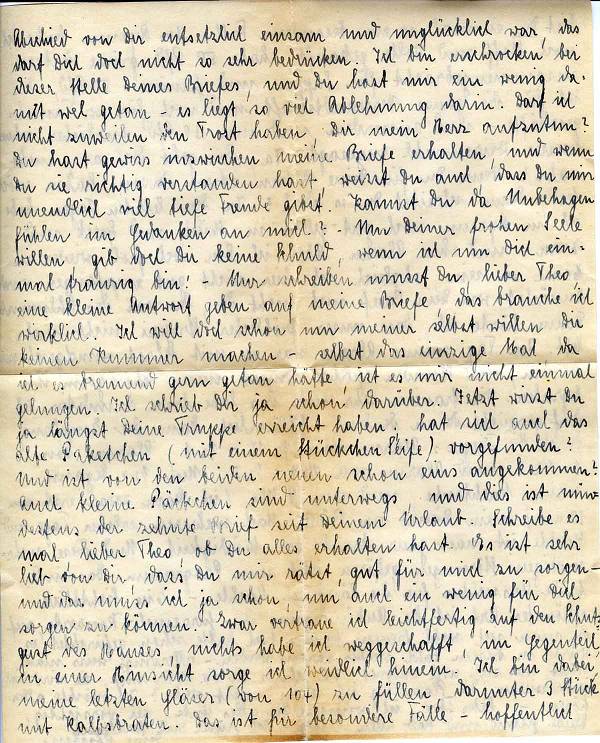 Abschied von Dir entsetzlich einsam und unglücklich war, das
darf Dich doch nicht so sehr bedrücken. Ich bin erschrocken bei
dieser Stelle Deines Briefes, und Du hast mir ein wenig da-
mit weh getan – es liegt so viel Ablehnung darin. Darf ich
nicht zuweilen den Trost haben, Dir mein Herz aufzutun?
Du hast gewiss inzwischen meine Briefe erhalten, und wenn
Du sie richtig verstanden hast, weisst Du auch, dass Du mir
unendlich viel tiefe Freude gibst. Kannst Du da Unbehagen
fühlen im Gedanken an mich? – Um Deiner frohen Seele
willen gib doch Dir keine Schuld, wenn ich um Dich ein-
mal traurig bin! – Nur schreiben musst Du, lieber Theo,
eine kleine Antwort geben auf meine Briefe, das brauche ich
wirklich. Ich will doch schon um meiner selbst willen Dir
keinen Kummer machen – selbst das einzige Mal, da
ich es brennend gern getan hätte, ist es mir nicht einmal
gelungen. Ich schrieb Dir ja schon darüber. Jetzt wirst Du
ja längst Deine Truppe erreicht haben. Hat sich auch das
alte Paketchen (mit einem Stückchen Seife) vorgefunden?
Und ist von den beiden neuen schon eins angekommen?
Auch kleine Päckchen sind unterwegs und dies ist min-
destens der zehnte Brief seit Deinem Urlaub. Schreibe es
mal, lieber Theo, ob Du alles erhalten hast. Es ist sehr
lieb von Dir, dass Du mir rätst, gut für mich zu sorgen –
und das muss ich ja schon, um auch ein wenig für Dich
sorgen zu können. Zwar vertraue ich leichtfertig auf den Schutz-
geist des Hauses, nichts habe ich weggeschafft, im Gegenteil,
in einer Hinsicht sorge ich weidlich hinein. Ich bin dabei,
meine letzten Gläser (von 104) zu füllen, darunter 3 Stück
mit Kalbsbraten. Das ist für besondere Fälle – hoffentlich